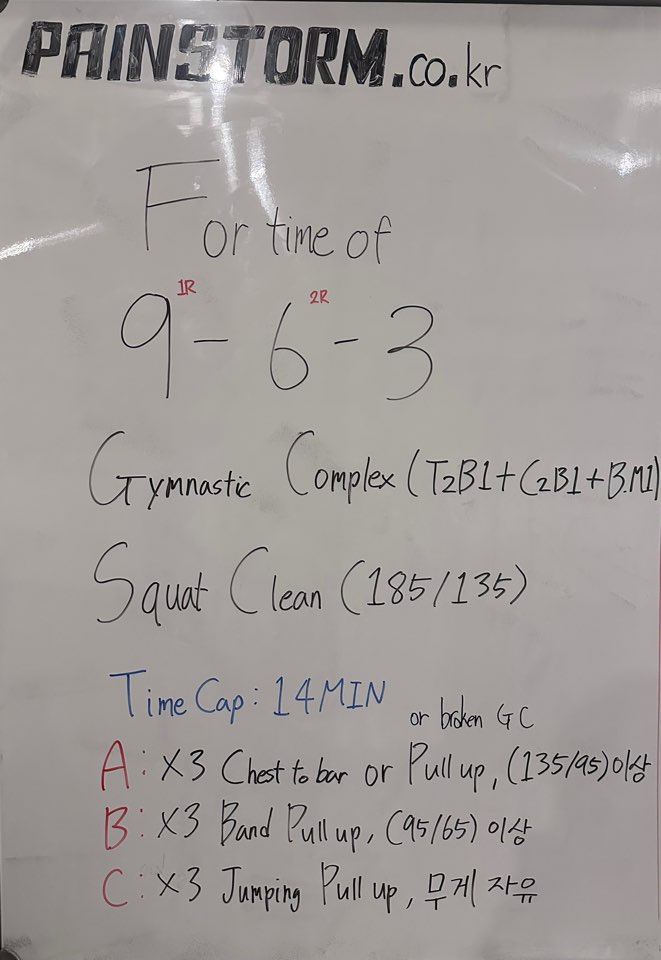 PAINSTORM.co.kr
For time of
1R 2R
9 - 6 - 3
Gymnastic Complex (T2B1+C2B1+B.M1)
Squat Clean (185/135)
Time Cap: 14MIN
or broken GC
A: X3 Chest to bar or Pull up, (135/95)이상
B: X3 Band Pull up, (95/65) 이상
C: X3 Jumping Pull up, 무게 자유